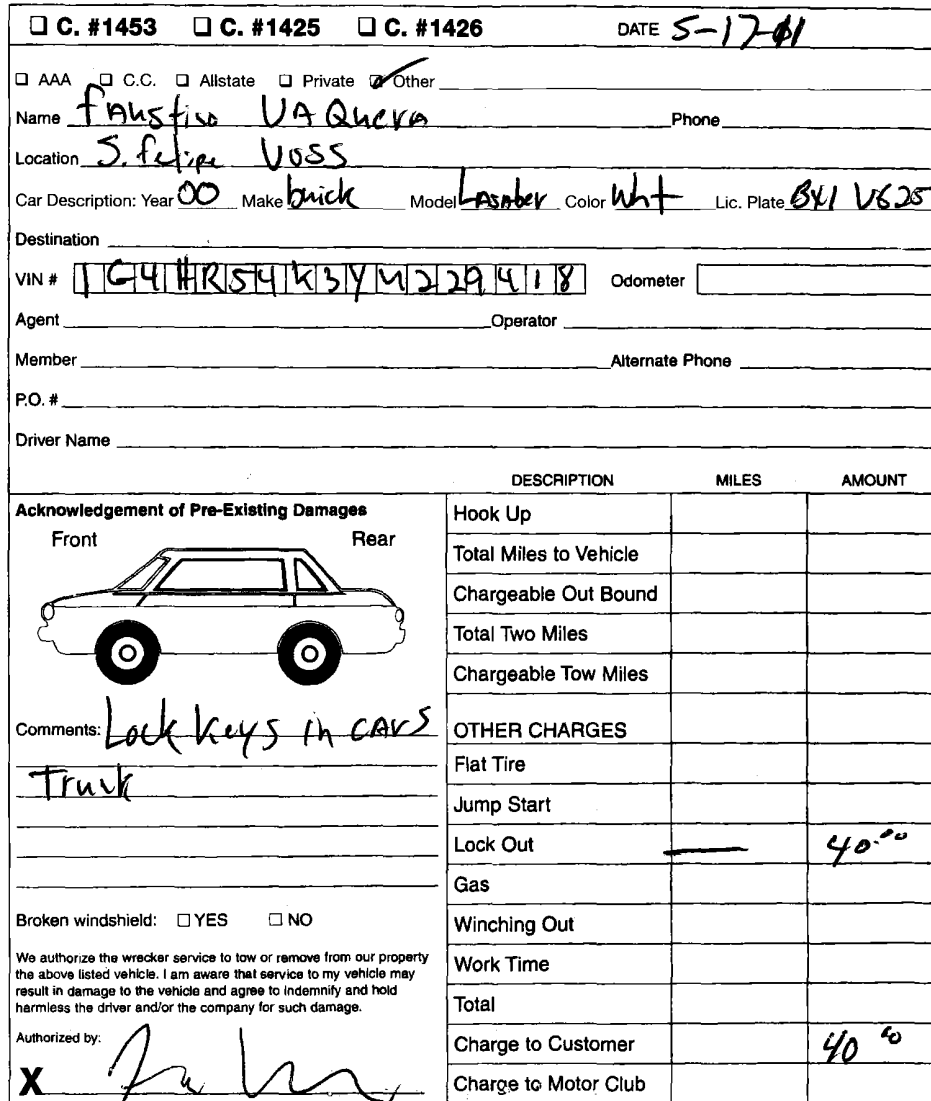 ☐ C. #1453 ☐ C. #1425 ☐ C. #1426 DATE 5-17-01
☐ AAA ☐ C.C. ☐ Allstate ☐ Private ☑ Other
Name FAustino VAQuera Phone
Location S. felipe VOSS
Car Description: Year 00 Make buick Model LASAber Color Wht Lic. Plate BX1 V625
Destination
VIN # 1G4HR54K3YU229418 Odometer
Agent Operator
Member Alternate Phone
P.O. #
Driver Name
DESCRIPTION MILES AMOUNT
Acknowledgement of Pre-Existing Damages
Front Rear
Comments: Lock keys in cArs
Trunk
Broken windshield: ☐ YES ☐ NO
We authorize the wrecker service to tow or remove from our property
the above listed vehicle. I am aware that service to my vehicle may
result in damage to the vehicle and agree to indemnify and hold
harmless the driver and/or the company for such damage.
Authorized by:
X
Hook Up
Total Miles to Vehicle
Chargeable Out Bound
Total Two Miles
Chargeable Tow Miles
OTHER CHARGES
Flat Tire
Jump Start
Lock Out — 40.00
Gas
Winching Out
Work Time
Total
Charge to Customer 40 00
Charge to Motor Club